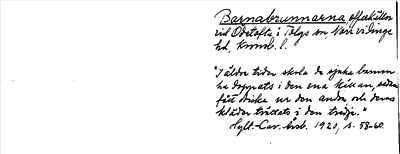 Barnabrunnarna, offerkällor
vid Odetofta i Tolgs sn, Norrvidinge
hd, Kronob. l.
"I äldre tider skola de sjuka barnen
ha doppats i den ena källan, sedan
fått dricka ur den andra och deras
kläder tvättats i den tredje."
Hylt.-Cav. Årsb. 1920, s. 58-60.